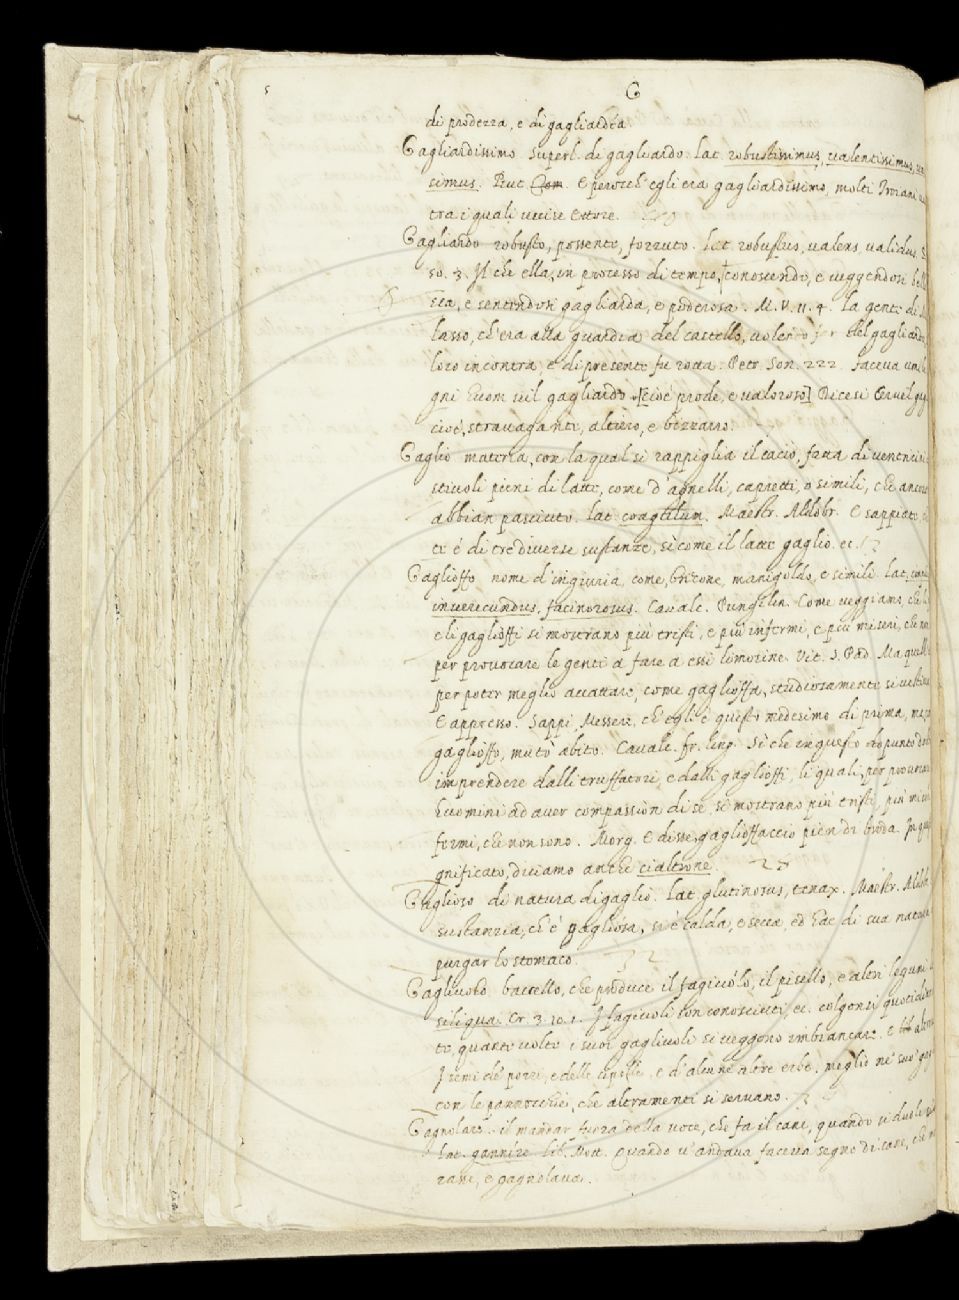 s G
di prodezza, e di gagliardía.
Gagliardissimo superl. di gagliardo. Lat. robustissimus, valentissimus,
simus. But. Com. E perocch' egli era gagliardissimo, molti Troiani
tra i quali uccise Ettore.
Gagliardo robusto, possente, forzuto. Lat. robustus, valens, validus.
so. 3. Il che ella, in processo di tempo, conoscendo, e veggendosi
sca, e sentendosi gagliarda, e poderosa. M. V. 11. 4. La gente di
lasso, ch'era alla guardia del castello, del gagliardo
loro incontra, e di presente fu rotta. Petr. Son. 222. faceva
gni huom vil gagliardo [cioè prode, e valoroso] Dicesi Cervel
cioè, stravagante, altiero, e bizzarro.
Gaglio materia, con la qual si rappiglia il cacio, fatta di
stivoli pieni di latte, come d'agnelli, capretti, o simili, che ancora
abbian pasciuto. Lat. coagulum. Maestr. Aldobr. E sappiate,
te è di tre diverse sustanze, sì come il latte gaglio. ec.
Gaglioffo nome d'ingiuria, come, briccone, manigoldo, e simili. Lat.
inverecundus, facinorosus. Cavalc. Pungilin. Come veggiamo, che
e li gaglioffi si mostrano più tristi, e più infermi, e più miseri, che non
per provocare le genti a fare a essi limosine. Vit. S. Pad. Ma quell
per poter meglio accattare, come gaglioffa, studiosamente si vestiva
E appresso. Sappi, Messere, ch'egli è questo medesimo di prima, ma
gaglioffo, mutò abito. Cavalc. fr. ling. Sì che in questo
imprendere dalli truffatori, e dalli gaglioffi, li quali, per provocar
huomini ad aver compassion di sé, si mostrano più tristi, più
fermi, che non sono. Morg. E disse, gaglioffaccio pien di broda. In
gnificato, diciamo anche cialtrone.
Gaglioso di natura di gaglio. Lat. glutinosus, tenax. Maestr. Aldob
sustanzia, ch'è gagliosa, si è calda, e secca, ed hae di sua natura
purgar lo stomaco.
Gagliuolo baccello, che produce il fagiuolo, il pisello, e altri legumi
siliqua. Cr. 3. 10. 1. I fagiuoli son conosciuti, ec. colgonsi
te, quante volte i suoi gagliuoli si veggono imbiancare. E
I semi de' porri, e delle cipolle, e d'alcune altre erbe, meglio ne' suo'
con le pannocchie, che altramenti si servano.
Gagnolare. il mandar fuora della voce, che fa il cane, quando si duole
Lat. gannire. Lib. Mott. Quando v'andava faceva segno di cane, che
rare, e gagnolava.